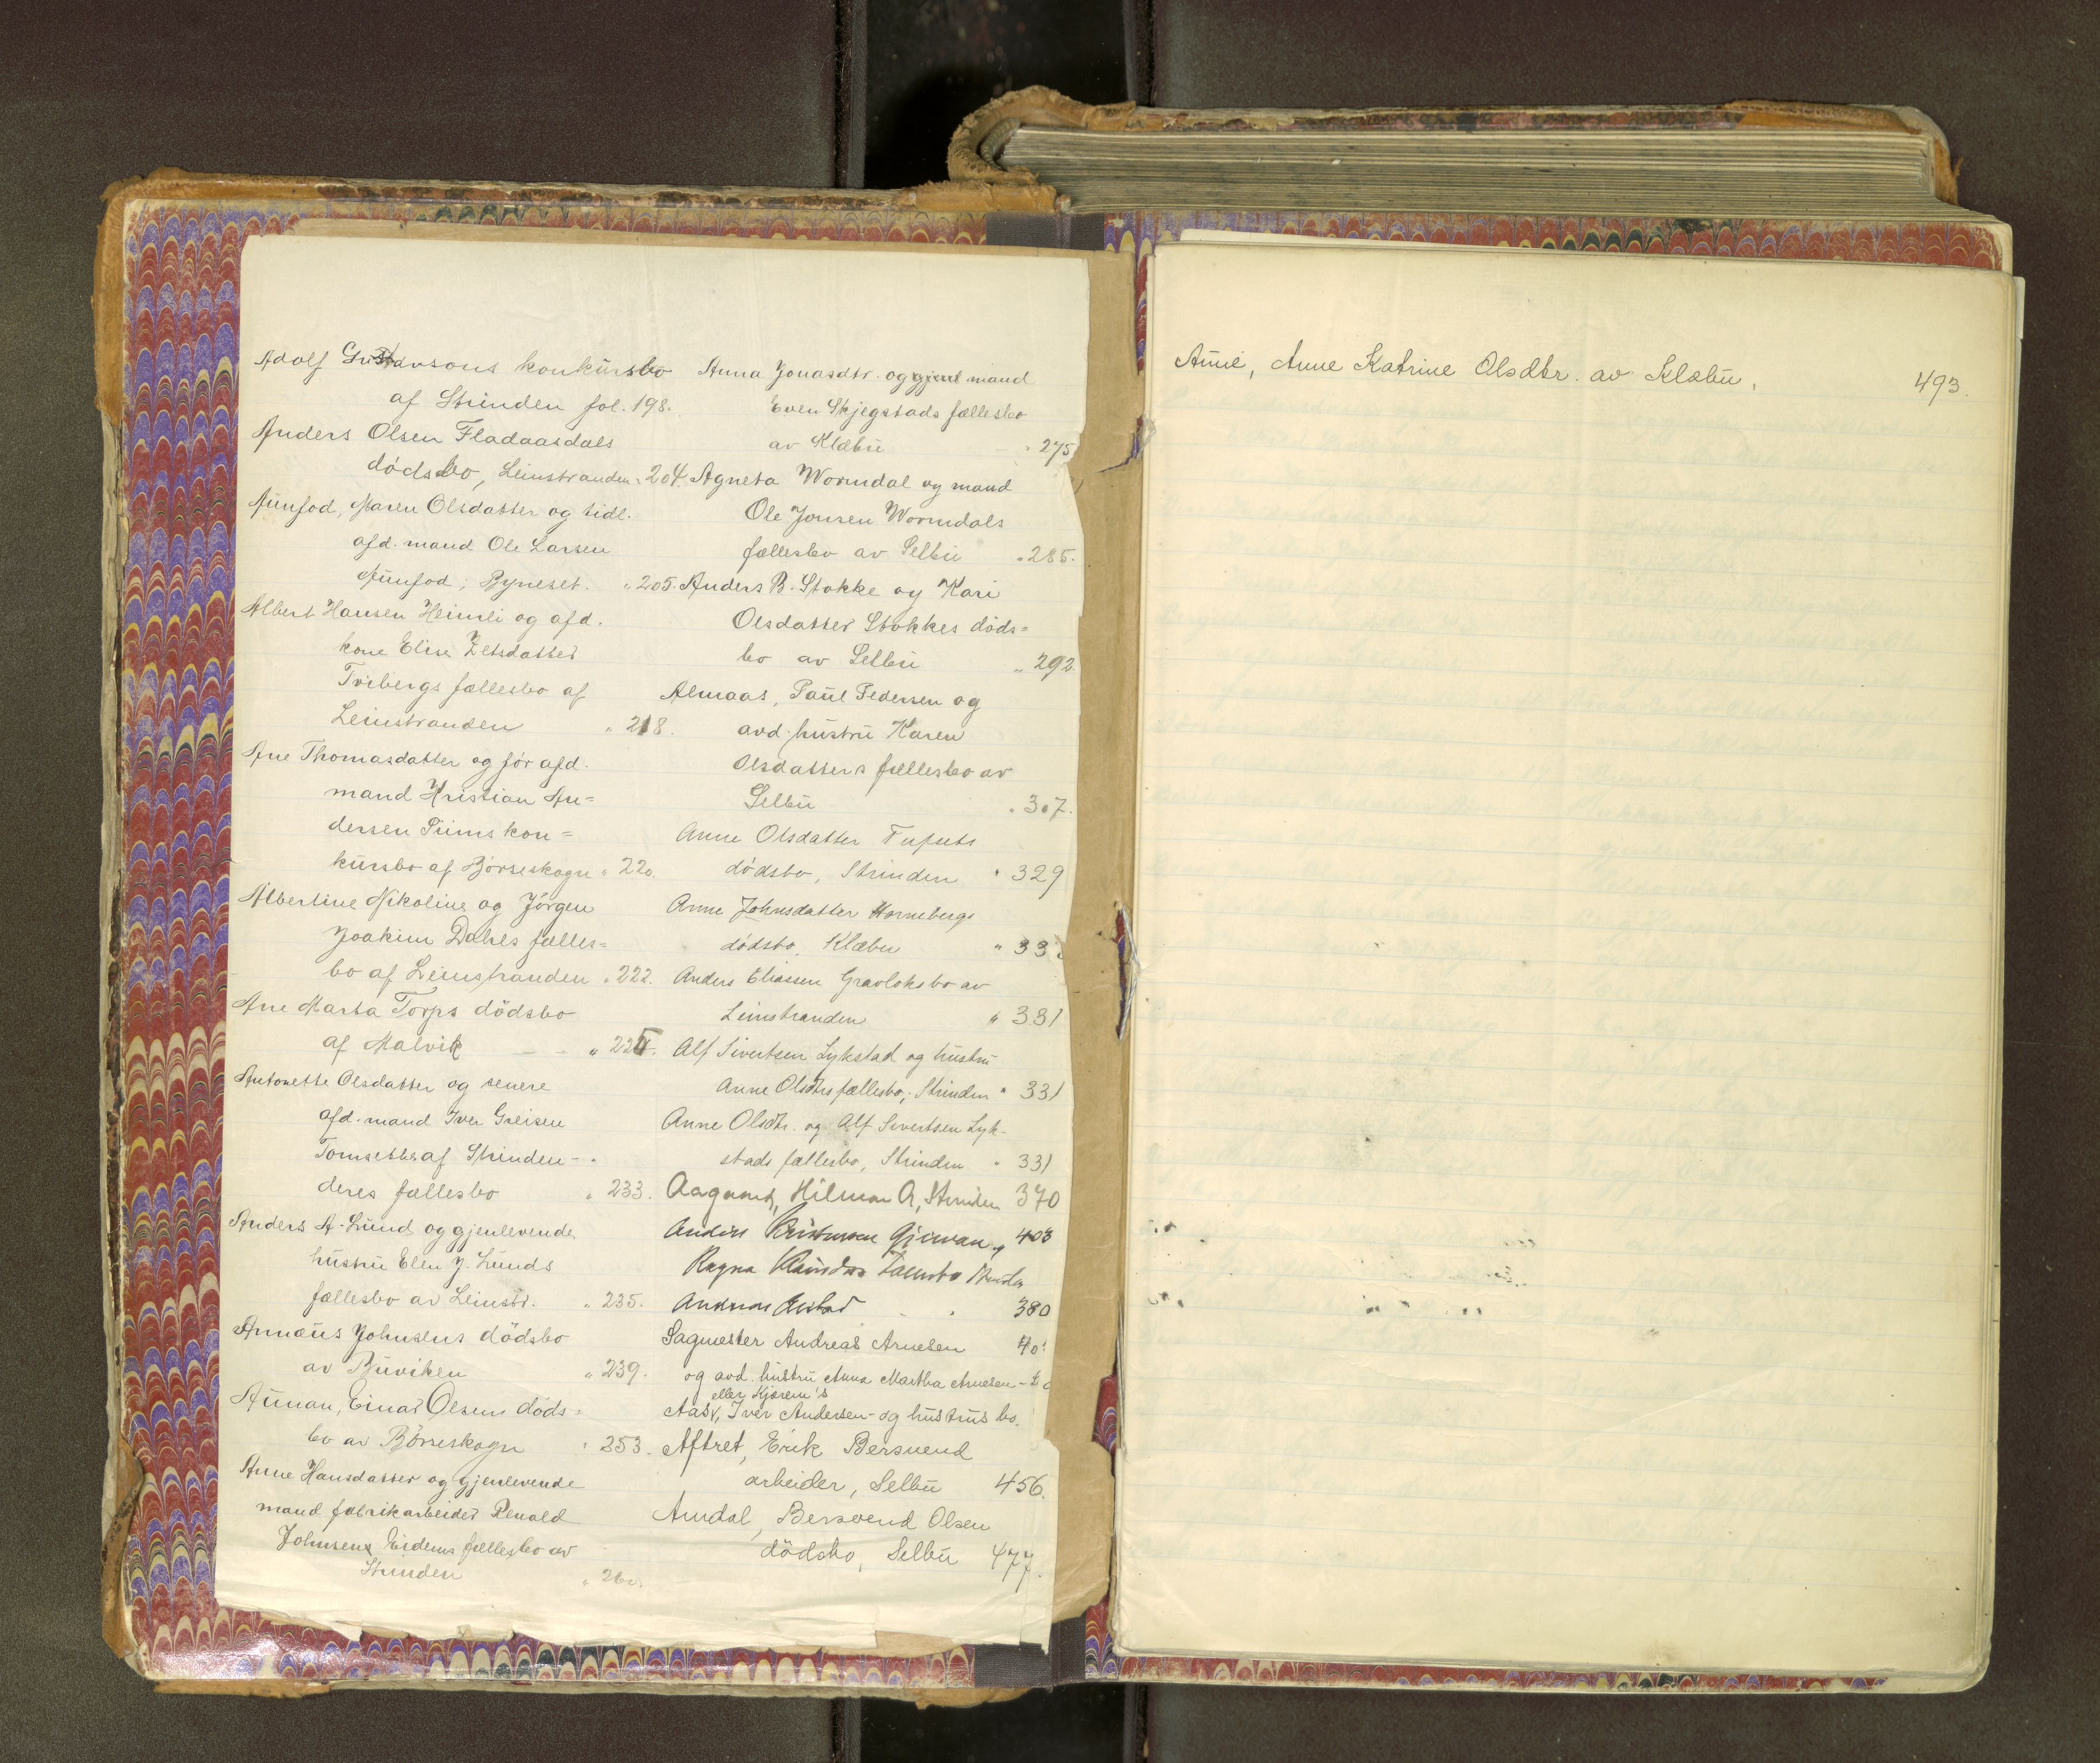 Adolf Gustavsons konkursbo
af Strinden fol. 198.
Anders Olsen Fladaasdals
dödsbo, Leinstranden „ 204.
Aunfod, Maren Olsdatter og tidl.
afd. mand Ole Larsen
Aunfod, Byneset. „ 205.
Albert Hansen Heimli og afd.
kone Elise
fællesbo af
Leinstranden „ 218.
Ane Thomasdatter og før afd.
mand Kristian An=
dersen kon=
kursbo af Børseskogn „ 220.
Albertine Nikoline og Jörgen
Joakim Dahls fælles=
bo af Leinstranden „ 222.
Ane Marta Torps dödsbo
af Malvik „
Antonette Olsdatter og senere
afd. mand Iver
af Strinden - -
deres fællesbo „ 233.
Anders A. Lund og gjenlevende
hustru Elen J. Lunds
fællesbo av Leinstr. „ 235.
Annæus Johnsens dödsbo
av Buviken „ 239.
Aunan, Einar Olsens döds=
bo av Börseskogn „ 253.
Anne Hansdatter og gjenlevende
mand fabrikarbeider
Johnsens Eidems fællesbo av
Strinden „ 260.
Anna Jonasdtr. og gjenl mand
Even Skjegstads fællesbo
av Klæbu „ 275
Agneta Wormdal og mand
Ole Jonsen Wormdals
fællesbo av Selbu „ 285.
Anders B. Stokke og Kari
Olsdatter Stokkes döds=
bo av Selbu „ 292.
Almaas, Paul Pedersen og
avd. hustru Karen
Olsdatters fællesbo av
Selbu „ 307.
Anne Olsdatter
dödsbo, Strinden „ 329
Anne Johnsdatter Hornebergs
dödsbo, Klæbu „ 33
Anders Eliassen bo av
Leinstranden „ 331
Alf Sivertsen Lykstad og hustru
Anne Olsdtrs fællesbo, Strinden „ 331
Anne Olsdtr. og Alf Sivertsen Lyk-
stads fællesbo, Strinden „ 331
Hilmar A, Strinden 370
Anders 403
Ragna
380
Sagmester Andreas Arnesen 40
og avd. hustru Anna Martha Arnesen -
eller Kjærem's
Aas, Iver Andersen - og hustrus bo.
Aftret, Erik Bersvend
arbeider, Selbu 456.
Amdal, Bersvend Olsen
dödsbo, Selbu 477.
Aune, Anne Katrine Olsdtr. av Klæbu, 493.